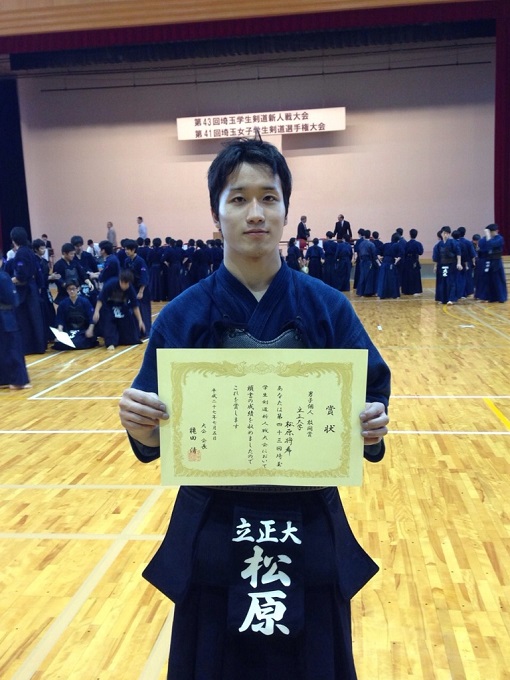 第43回埼玉学生剣道新人戦大会
第41回埼玉女子学生剣道選手権大会
賞状
男子個人 敢闘賞
立正大学
松原
あなたは第四十三回埼玉
学生剣道新人戦大会において
頭書の成績を収めましたので
これを賞します
平成二十七年七月五日
大会会長
立正大
松原